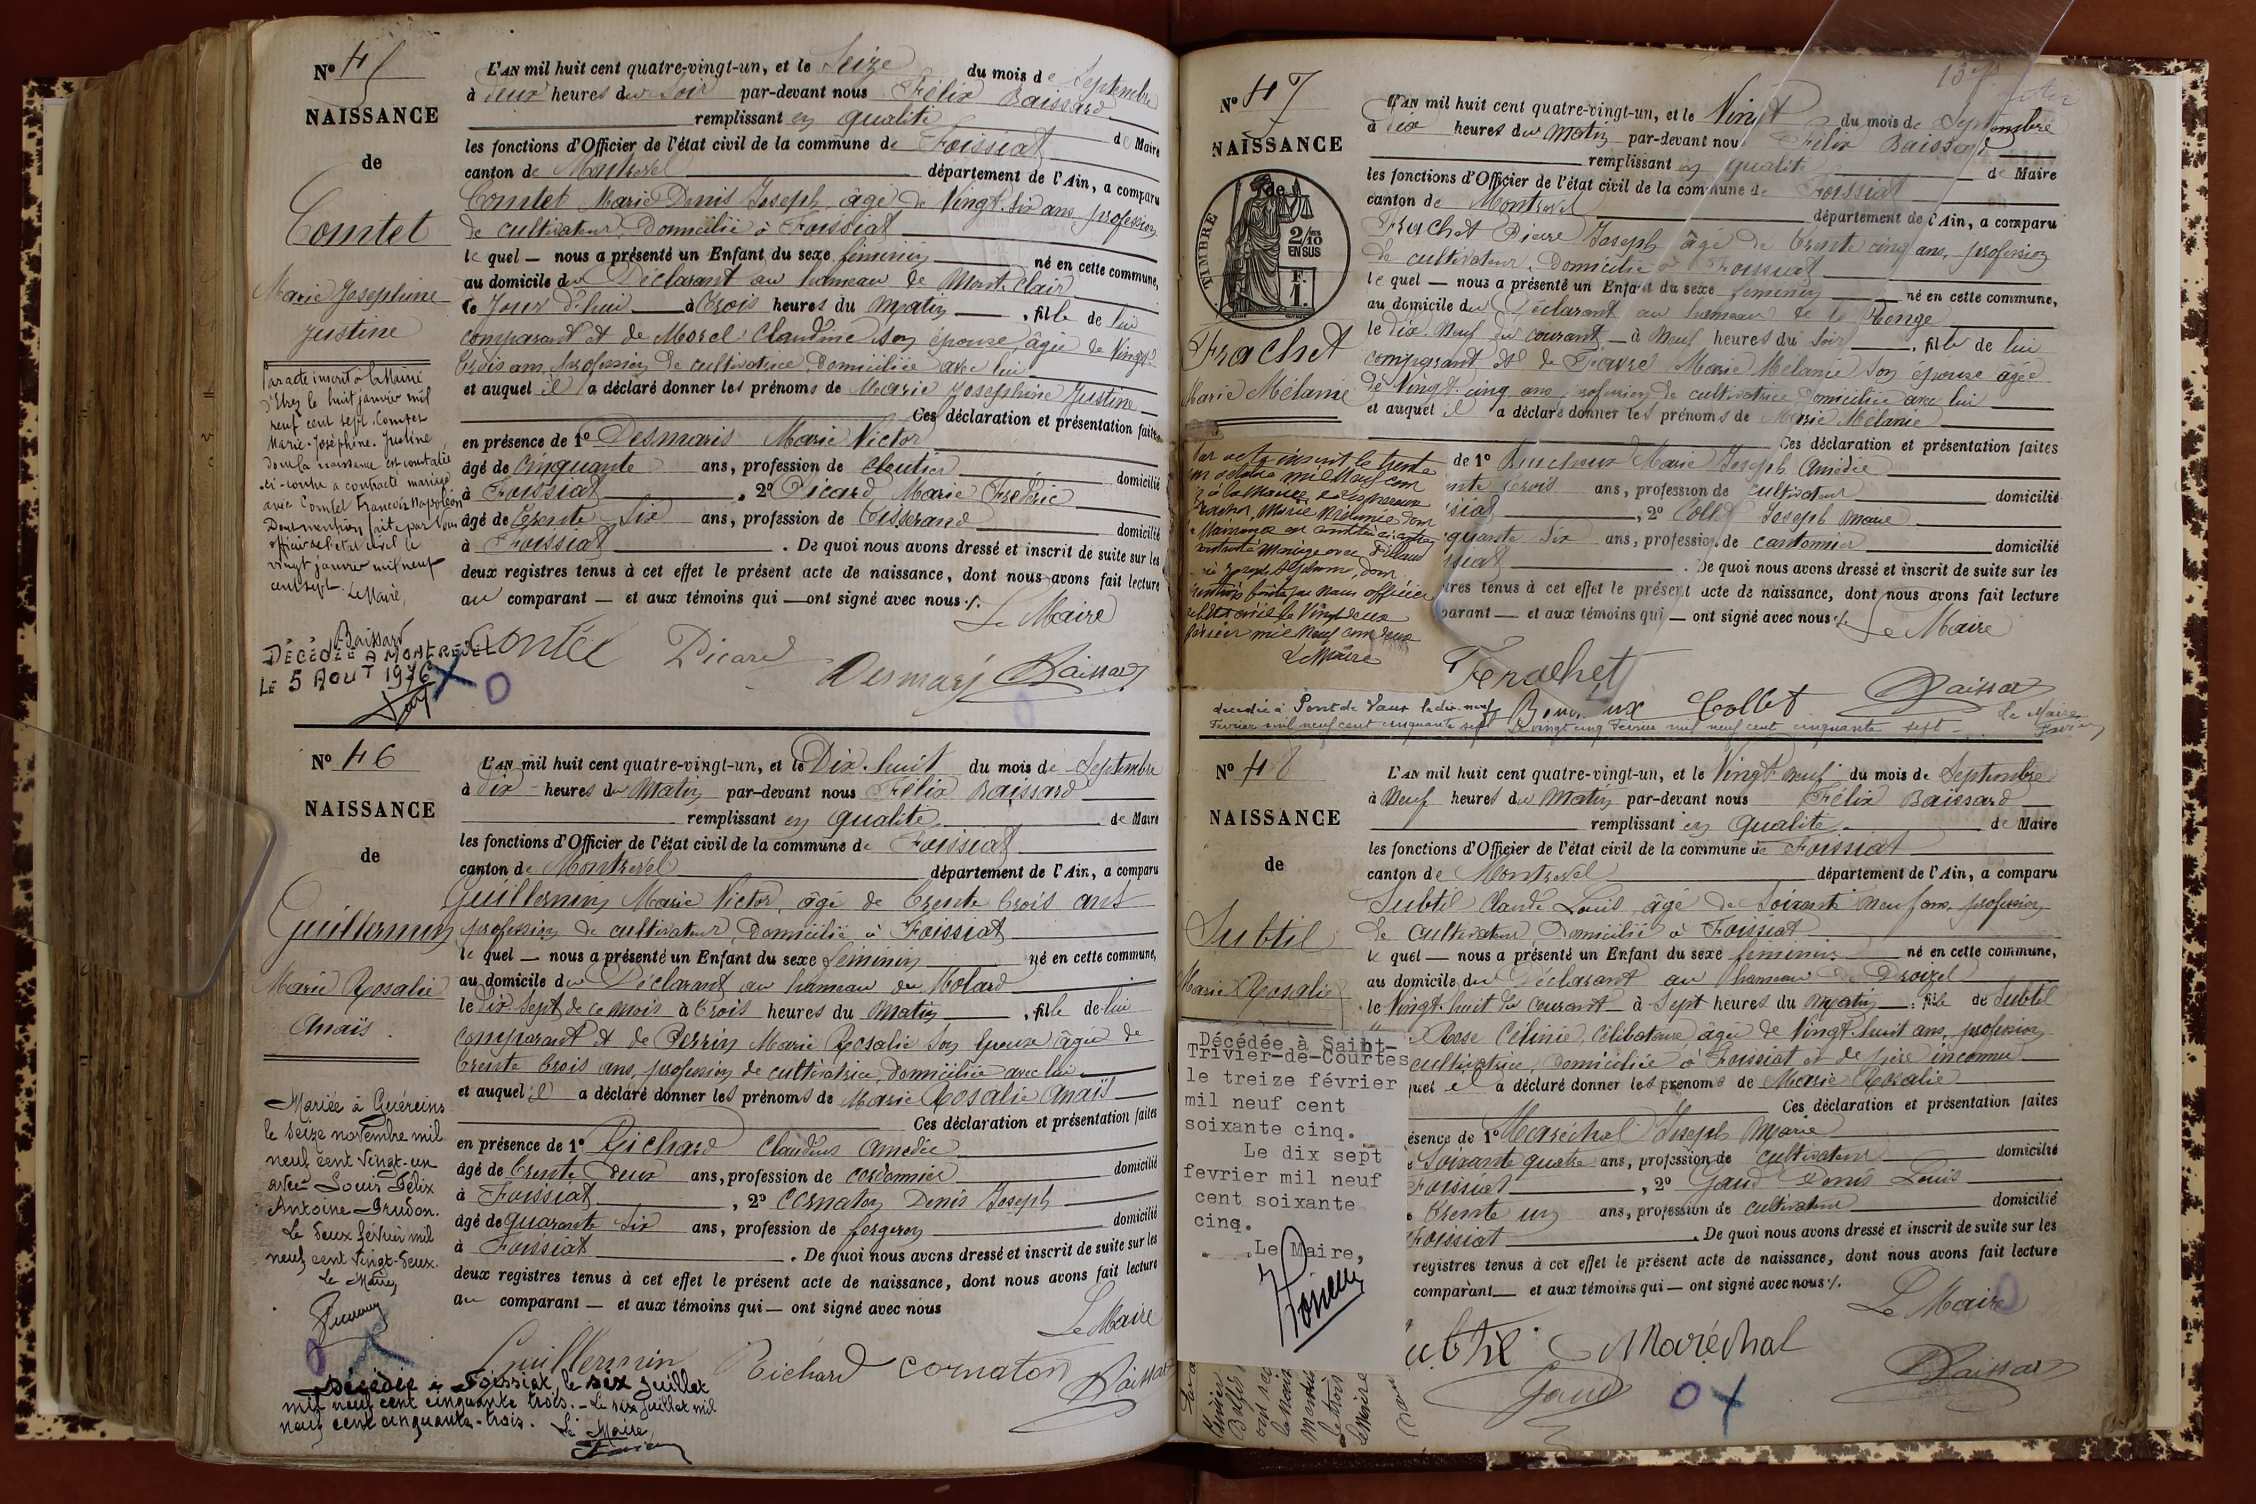 Nº 45
NAISSANCE
de
Comtet
Marie Josephine
Justine
Par acte inscrit à la Mairie
d'Etrez le huit janvier mil
neuf cent sept Comtet
Marie-Joséphine-Justine
dont la naissance est constatée
ci-contre a contracté mariage
avec Comtet François Napoléon
Dont mention faite par nous
officier de l'état civil le
vingt janvier mil neuf
cent sept. Le Maire,
Baissard
DÉCÉDÉE A MONTREVEL
LE 5 AOUT 1976
L'AN mil huit cent quatre-vingt-un, et le Seize du mois de Septembre
à deux heures du Soir par-devant nous Félix Baissard
remplissant en qualité de Maire
les fonctions d'Officier de l'état civil de la commune de Foissiat
canton de Montrevel département de l'Ain, a comparu
Comtet Marie Denis Joseph, âgé de Vingt six ans profession
de cultivateur, Domicilié à Foissiat
le quel — nous a présenté un Enfant du sexe féminin né en cette commune,
au domicile du Déclarant au hameau de Mont Clair
le Jour d'hui à trois heures du matin, fille de lui
comparant et de Morel Claudine son épouse âgée de Vingt
trois ans, profession de cultivatrice, Domiciliée avec lui
et auquel il a déclaré donner les prénoms de Marie Josephine Justine
Ces déclaration et présentation faites
en présence de 1º Desmaris Marie Victor
âgé de Cinquante ans, profession de cloutier domicilié
à Foissiat, 2º Picard Marie Frédéric
âgé de trente six ans, profession de tisserand domicilié
à Foissiat. De quoi nous avons dressé et inscrit de suite sur les
deux registres tenus à cet effet le présent acte de naissance, dont nous avons fait lecture
au comparant — et aux témoins qui — ont signé avec nous ./.
Le Maire
Comtet Picard Desmaris Baissard
Nº 46
NAISSANCE
de
Guillermin
Marie Rosalie
Anaïs
Mariée à Guéreins
le seize novembre mil
neuf cent vingt-un
avec Louis Félix
Antoine Prudon.
Le deux février mil
neuf cent vingt-deux.
Le Maire
L'AN mil huit cent quatre-vingt-un, et le Dix-huit du mois de Septembre
à Dix heures du Matin par-devant nous Félix Baissard
remplissant en qualité de Maire
les fonctions d'Officier de l'état civil de la commune de Foissiat
canton de Montrevel département de l'Ain, a comparu
Guillermin Marie Victor, âgé de trente trois ans
profession de cultivateur, Domicilié à Foissiat
le quel — nous a présenté un Enfant du sexe féminin né en cette commune,
au domicile du Déclarant au hameau du Molard
le Dix Sept de ce mois à trois heures du Matin, fille de lui
comparant et de Perrin Marie Rosalie son épouse âgée de
trente trois ans, profession de cultivatrice, domiciliée avec lui
et auquel il a déclaré donner les prénoms de Marie Rosalie Anaïs
Ces déclaration et présentation faites
en présence de 1º Richard Claudius Amédée
âgé de trente deux ans, profession de cordonnier domicilié
à Foissiat, 2º Cornaton Denis Joseph
âgé de quarante six ans, profession de forgeron domicilié
à Foissiat. De quoi nous avons dressé et inscrit de suite sur les
deux registres tenus à cet effet le présent acte de naissance, dont nous avons fait lecture
au comparant — et aux témoins qui — ont signé avec nous
Le Maire
Guillermin Richard Cornaton Baissard
Décédée à Foissiat, le six juillet
mil neuf cent cinquante trois. - Le six juillet mil
neuf cent cinquante-trois. Le Maire,
Nº 47
NAISSANCE
de
TIMBRE
2/10 EN SUS
F. 1.
Frachet
Marie Mélanie
L'AN mil huit cent quatre-vingt-un, et le Vingt du mois de Septembre
à dix heures du Matin par-devant nous Félix Baissard
remplissant en qualité de Maire
les fonctions d'Officier de l'état civil de la commune de Foissiat
canton de Montrevel département de l'Ain, a comparu
Frachet Pierre Joseph âgé de trente cinq ans, profession
de cultivateur, Domicilié à Foissiat
le quel — nous a présenté un Enfant du sexe féminin né en cette commune,
au domicile du Déclarant au hameau de
le dix neuf du courant à Neuf heures du Soir, fille de lui
comparant et de Favre Marie Mélanie son épouse âgée
de Vingt cinq ans, profession de cultivatrice domiciliée avec lui
et auquel il a déclaré donner les prénoms de Marie Mélanie
Ces déclaration et présentation faites
de 1º Marie Joseph Amédée
trois ans, profession de cultivateur domicilié
2º Collet Joseph Marie
six ans, profession de cantonnier domicilié
De quoi nous avons dressé et inscrit de suite sur les
tenus à cet effet le présent acte de naissance, dont nous avons fait lecture
et aux témoins qui — ont signé avec nous ./.
Le Maire
Frachet
Collet Baissard
Par acte inscrit le trente
octobre mil neuf cent
Marie Mélanie dont
mariage avec
officier
le vingt deux
février mil neuf cent deux
Le Maire
décédée à Pont de Vaux le dix-neuf
Février mil neuf cent cinquante sept Le vingt cinq Février mil neuf cent cinquante sept
Le Maire
Nº 48
NAISSANCE
de
Subtil
Marie Rosalie
L'AN mil huit cent quatre-vingt-un, et le Vingt neuf du mois de Septembre
à Neuf heures du Matin par-devant nous Félix Baissard
remplissant en qualité de Maire
les fonctions d'Officier de l'état civil de la commune de Foissiat
canton de Montrevel département de l'Ain, a comparu
Subtil Claude Louis, âgé de Soixante neuf ans, profession
de cultivateur Domicilié à Foissiat
le quel — nous a présenté un Enfant du sexe féminin né en cette commune,
au domicile du Déclarant au hameau de
le Vingt huit du courant à Sept heures du matin, fille de Subtil
Rose Célinie, Célibataire, âgée de Vingt huit ans, profession
cultivatrice, domiciliée à Foissiat et de père inconnu
quel il a déclaré donner les prénoms de Marie Rosalie
Ces déclaration et présentation faites
ésence de 1º Maréchal Joseph Marie
Soixante quatre ans, profession de cultivateur domicilié
Foissiat, 2º Gaud Denis Louis
trente un ans, profession de cultivateur domicilié
Foissiat. De quoi nous avons dressé et inscrit de suite sur les
registres tenus à cet effet le présent acte de naissance, dont nous avons fait lecture
comparant — et aux témoins qui — ont signé avec nous ./.
Le Maire
ubtil Maréchal
Gaud Baissard
Décédée à Saint-
Trivier-de-Courtes
le treize février
mil neuf cent
soixante cinq.
Le dix sept
fevrier mil neuf
cent soixante
cinq.
Le Maire,